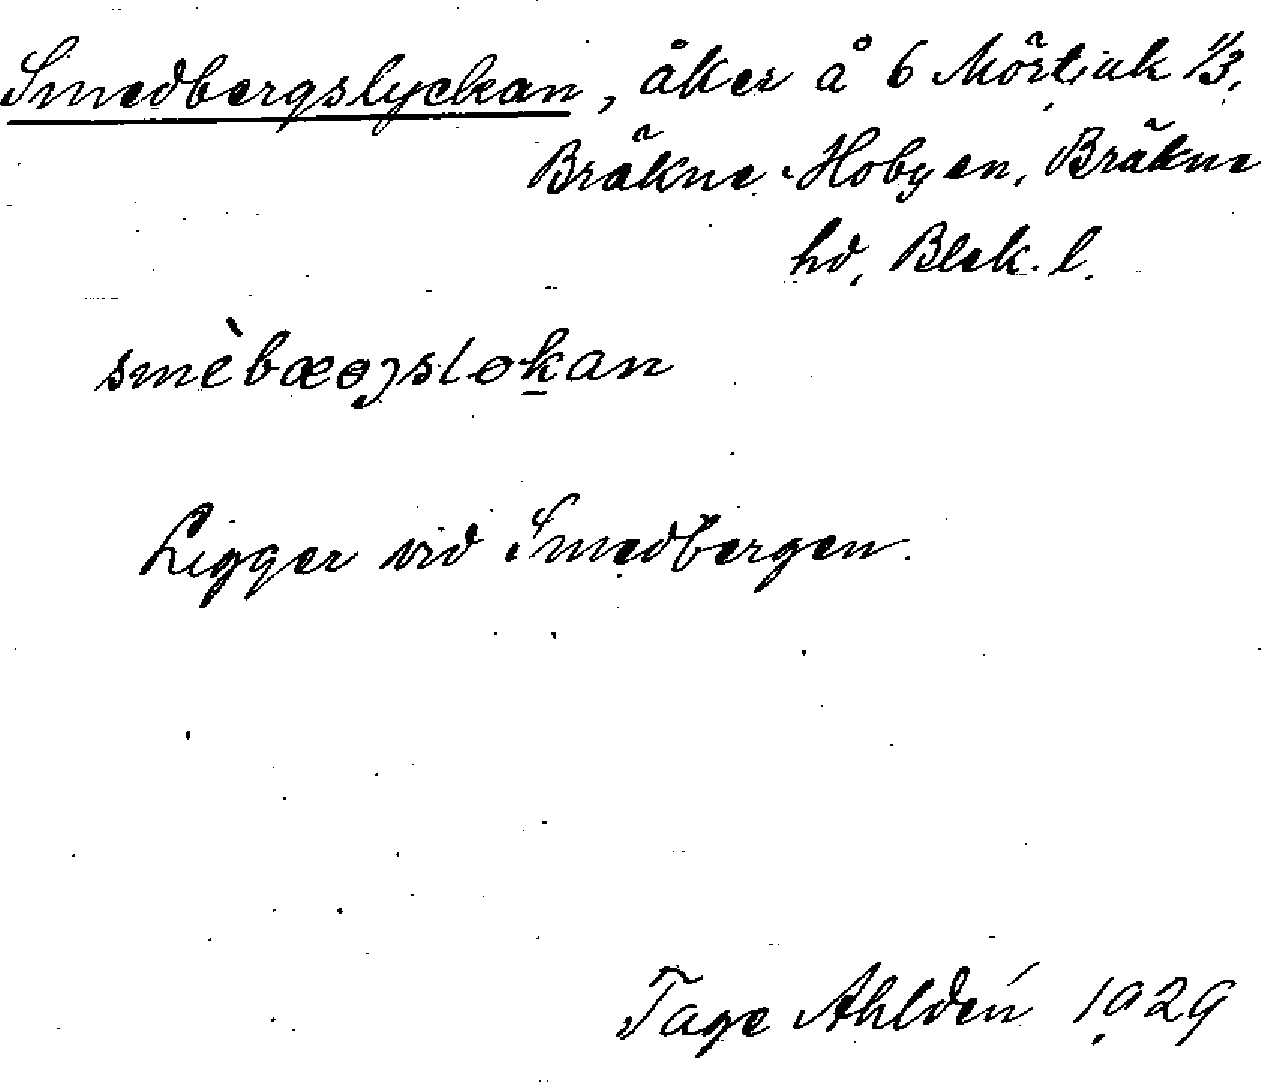 Smedbergslyckan, åker å 6 Mörtjuk 1/3,
Bräkne-Hobyen, Bräkne
hd, Blek. l.
smèbæɵȷsløkan
Ligger vid Smedbergen.
Tage Ahldén 1929